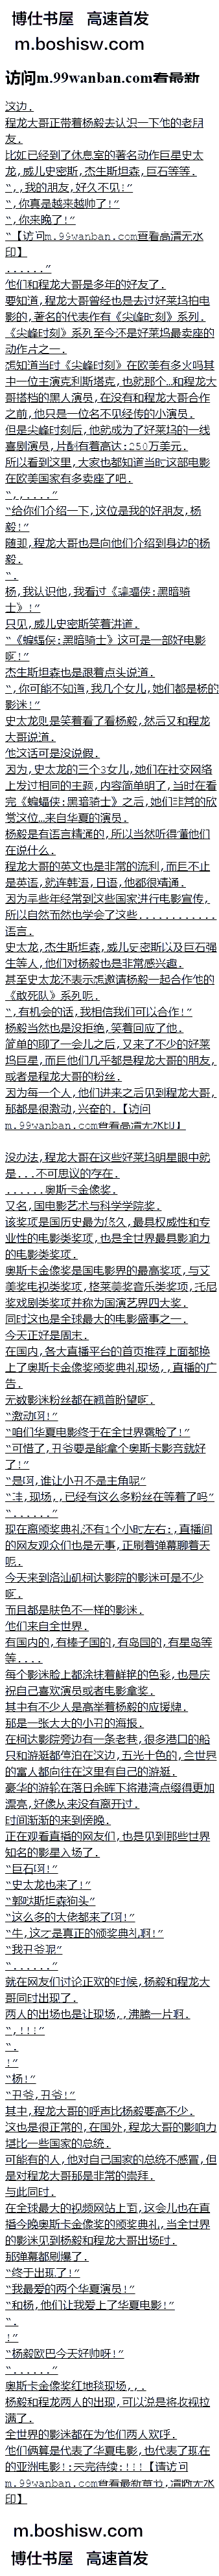 博仕书屋 高速首发
m.boshisw.com
访问m.99wanban.com看最新
这边.
程龙大哥正带着杨毅去认识一下他的老朋
友.
比如已经到了休息室的著名动作巨星史太
龙,威儿史密斯,杰生斯坦森,巨石等等.
“,,我的朋友,好久不见!”
“,你真是越来越帅了!”
“,你来晚了!”
“【访问m.99wanban.com查看高清无水
印】
......”
他们和程龙大哥是多年的好友了.
要知道,程龙大哥曾经也是去过好莱坞拍电
影的,著名的代表作有《尖峰时刻》系列.
《尖峰时刻》系列至今还是好莱坞最卖座的
动作片之一.
想知道当时《尖峰时刻》在欧美有多火吗其
中一位主演克利斯塔克,也就那个..和程龙大
哥搭档的黑人演员,在没有和程龙大哥合作
之前,他只是一位名不见经传的小演员.
但是尖峰时刻后,他就成为了好莱坞的一线
喜剧演员,片酬有着高达:250万美元.
所以看到这里,大家也都知道当时这部电影
在欧美国家有多卖座了吧.
“,,....”
“给你们介绍一下,这位是我的好朋友,杨
毅!”
随即,程龙大哥也是向他们介绍到身边的杨
毅.
“.
杨,我认识他,我看过《蝙蝠侠:黑暗骑
士》!”
只见,威儿史密斯笑着讲道.
“《蝙蝠侠:黑暗骑士》这可是一部好电影
啊!”
杰生斯坦森也是跟着点头说道.
“,你可能不知道,我几个女儿,她们都是杨的
影迷!”
史太龙则是笑着看了看杨毅,然后又和程龙
大哥说道.
他这话可是没说假.
因为,史太龙的三个3女儿,她们在社交网络
上发过相同的主题,内容简单明了,当时在看
完《蝙蝠侠:黑暗骑士》之后,她们非常的欣
赏这位..来自华夏的演员.
杨毅是有语言精通的,所以当然听得懂他们
在说什么.
程龙大哥的英文也是非常的流利,而且不止
是英语,就连韩语,日语,他都很精通.
因为早些年经常到这些国家进行电影宣传,
所以自然而然也学会了这些............
语言.
史太龙,杰生斯坦森,威儿史密斯以及巨石强
生等人,他们对杨毅也是非常感兴趣.
甚至史太龙还表示想邀请杨毅一起合作他的
《敢死队》系列呢.
“,有机会的话,我相信我们可以合作!”
杨毅当然也是没拒绝,笑着回应了他.
简单的聊了一会儿之后,又来了不少的好莱
坞巨星,而且他们几乎都是程龙大哥的朋友,
或者是程龙大哥的粉丝.
因为每一个人,他们进来之后见到程龙大哥,
都都是很激动,兴奋的.【访问
m.99wanban.com查看高清无水印】
没办法,程龙大哥在这些好莱坞明星眼中就
是...不可思议的存在.
......奥斯卡金像奖.
又名,国电影艺术与科学学院奖.
该奖项是国历史最为悠久,最具权威性和专
业性的电影类奖项,也是全世界最具影响力
的电影类奖项.
奥斯卡金像奖是国电影界的最高奖项,与艾
美奖电视类奖项,格莱美奖音乐类奖项,托尼
奖戏剧类奖项并称为国演艺界四大奖.
同时这也是全球最大的电影盛事之一.
今天正好是周末.
在国内,各大直播平台的首页推荐上面都换
上了奥斯卡金像奖颁奖典礼现场,,直播的广
告.
无数影迷粉丝都在翘首盼望啊.
“激动啊!”
“咱们华夏电影终于在全世界露脸了!”
“可惜了,丑爷要是能拿个奥斯卡影帝就好
了!”
“是啊,谁让小丑不是主角呢”
“哇,现场,,已经有这么多粉丝在等着了吗”
“......”
现在离颁奖典礼还有1个小时左右:,直播间
的网友观众们也是无事,正刷着弹幕聊着天
呢.
今天来到洛汕矶柯达影院的影迷可是不少
啊.
而且都是肤色不一样的影迷.
他们来自全世界.
有国内的,有棒子国的,有岛国的,有星岛等
等....
每个影迷脸上都涂抹着鲜艳的色彩,也是庆
祝自己喜欢演员或者电影拿奖.
其中有不少人是高举着杨毅的应援牌.
都是一张大大的小丑的海报.
在柯达影院旁边有一条老巷,很多港口的船
只和游艇都停泊在这边,五光十色的,全世界
的富人都向往在这里有自己的游艇.
豪华的游轮在落日余晖下将港湾点缀得更加
漂亮,好像从来没有离开过.
时间渐渐的来到傍晚.
正在观看直播的网友们,也是见到那些世界
知名的影星入场了.
“巨石啊!”
“史太龙也来了!”
“郭哒斯坦森狗头”
“这么多的大佬都来了啊!”
“牛,这才是真正的颁奖典礼啊!”
“我丑爷呢”
“......”
就在网友们讨论正欢的时候,杨毅和程龙大
哥同时出现了.
两人的出场也是让现场,,沸腾一片啊.
“,!!!”
“.
!”
“杨!”
“丑爷,丑爷!”
其中,程龙大哥的呼声比杨毅要高不少.
这也是很正常的,在国外,程龙大哥的影响力
堪比一些国家的总统.
可能有的人,他对自己国家的总统不感冒,但
是对程龙大哥那是非常的崇拜.
与此同时.
在全球最大的视频网站上面,这会儿也在直
播今晚奥斯卡金像奖的颁奖典礼,当全世界
的影迷见到杨毅和程龙大哥出场时.
那弹幕都刷爆了.
“终于出现了!”
“我最爱的两个华夏演员!”
“和杨,他们让我爱上了华夏电影!”
“.
!”
“杨毅欧巴今天好帅呀!”
“......”
奥斯卡金像奖红地毯现场,,.
杨毅和程龙两人的出现,可以说是将收视拉
满了.
全世界的影迷都在为他们两人欢呼.
他们俩算是代表了华夏电影,也代表了现在
的亚洲电影!:未完待续:!!!【请访问
m.99wanban.com查看最新章节,清晰无水
印】
m.boshisw.com
博仕书屋 高速首发